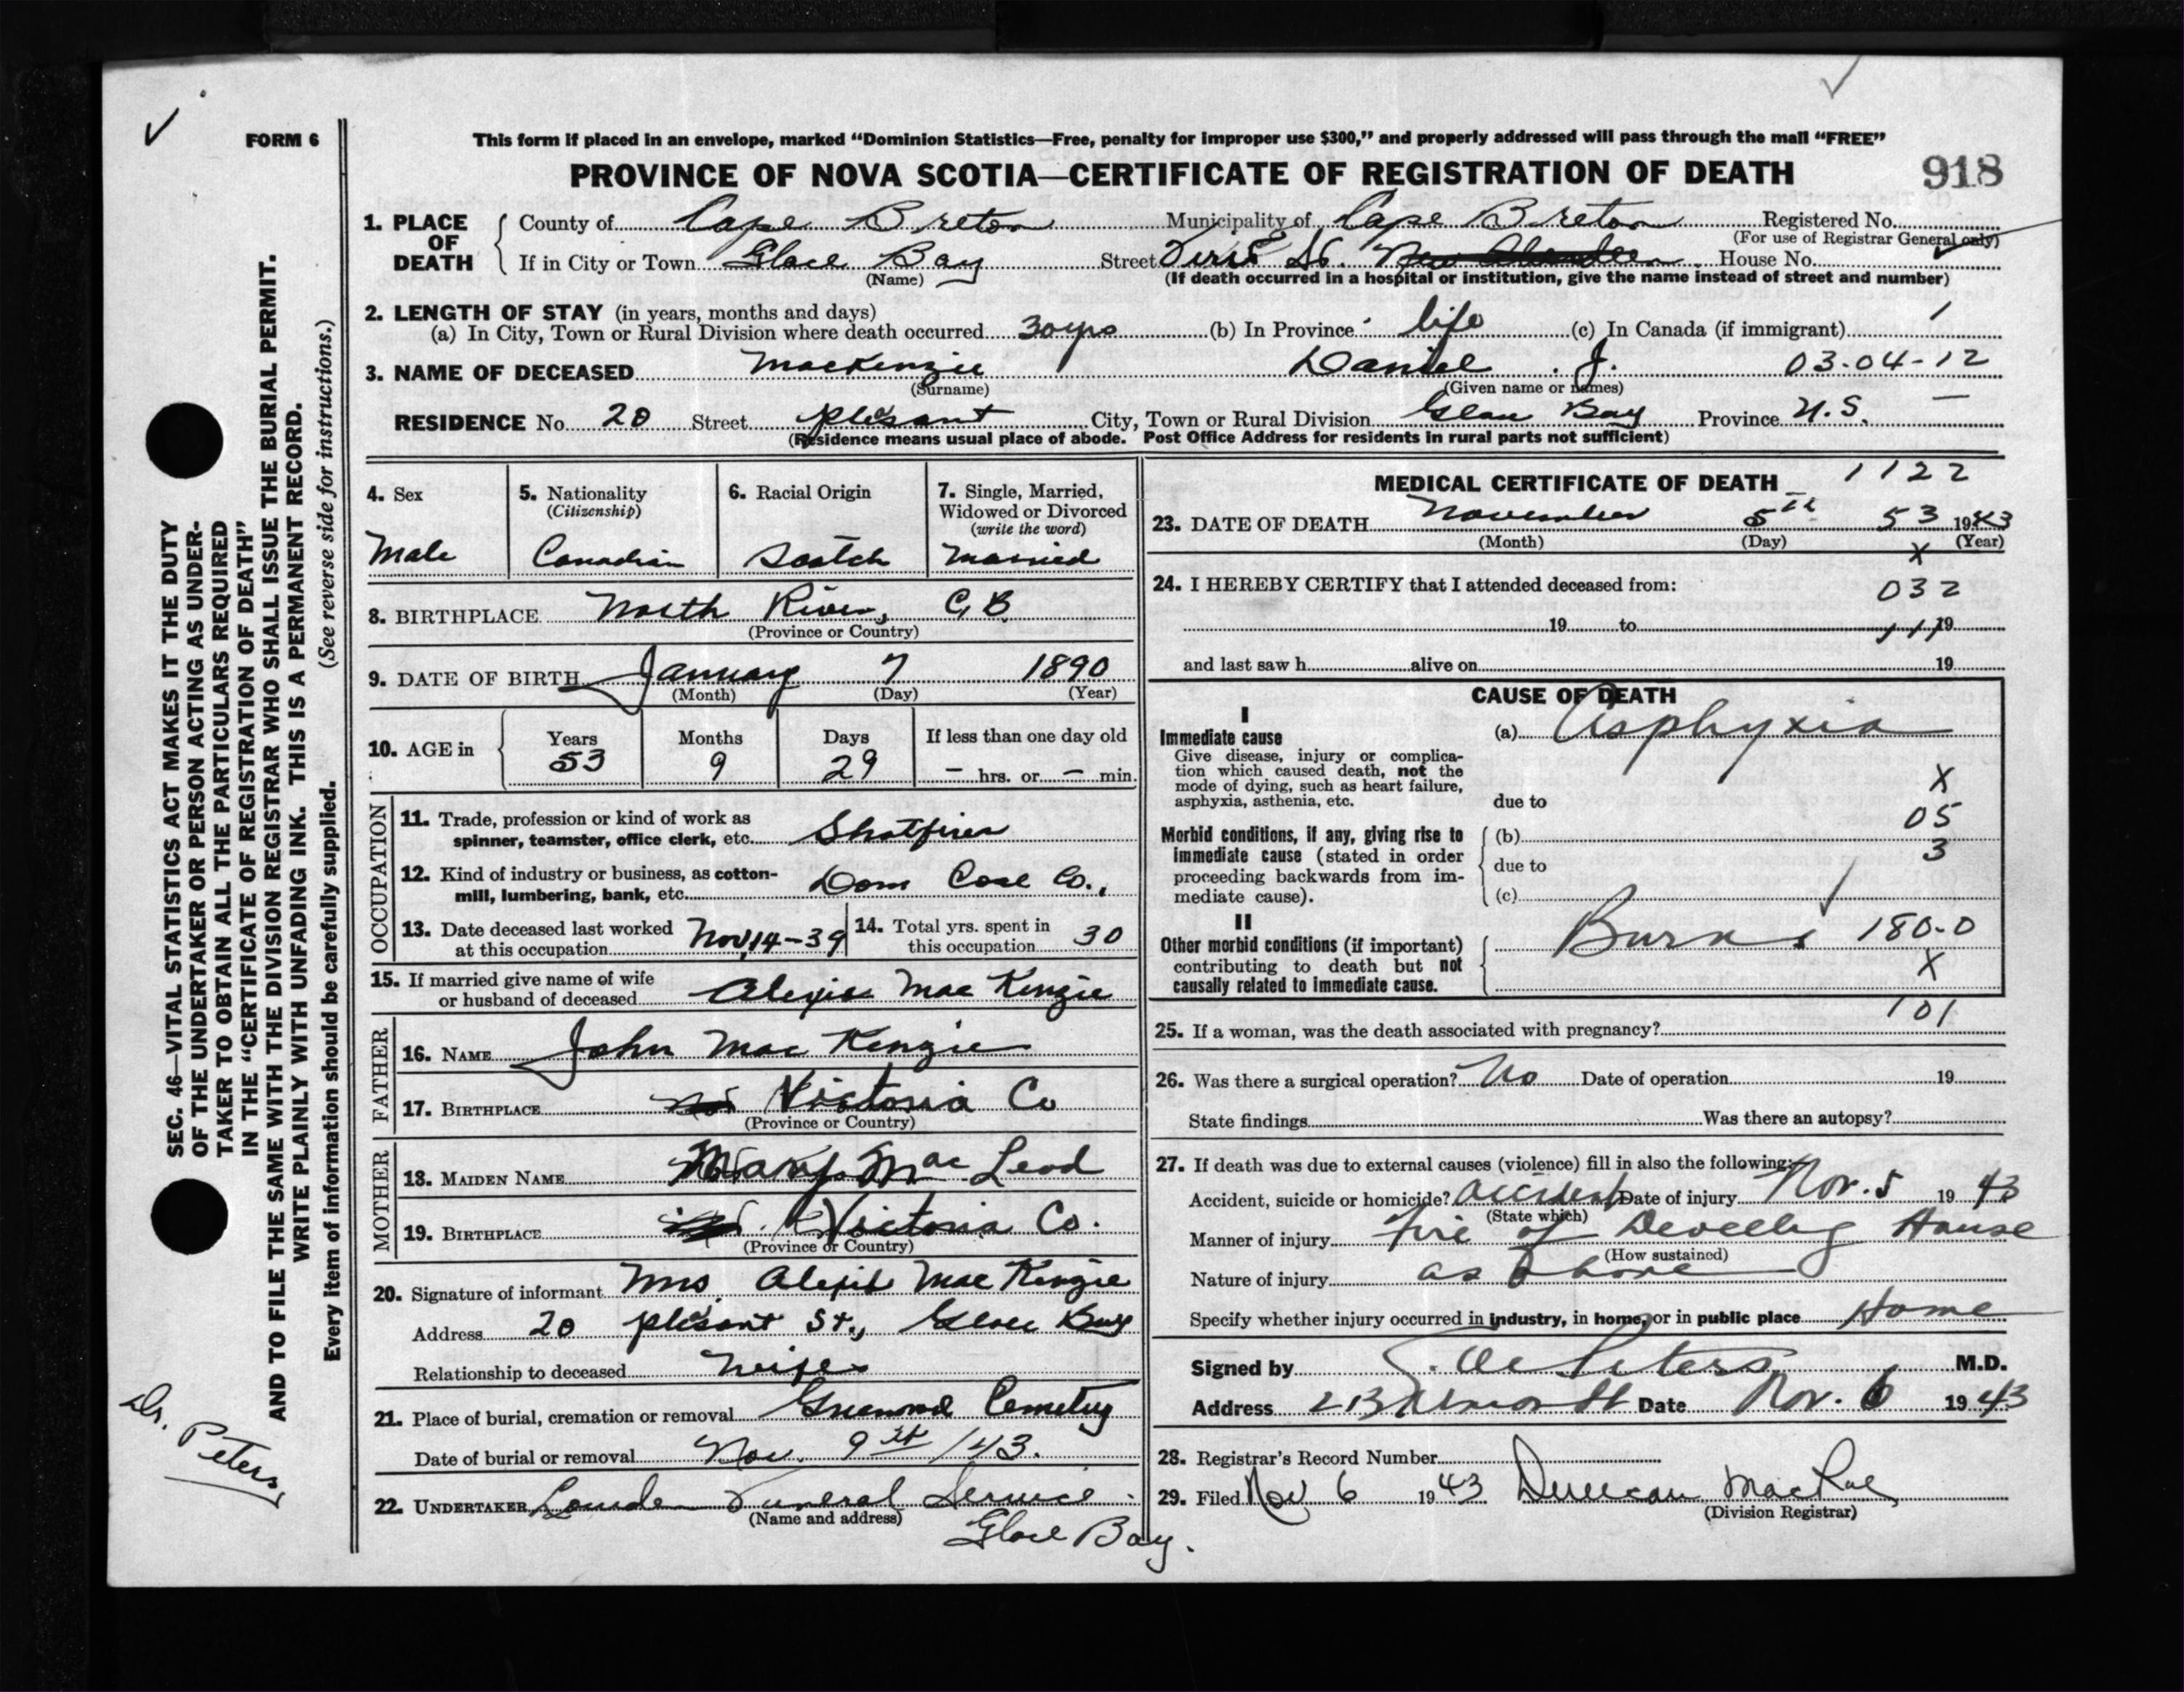 FORM 6
This form if placed in an envelope, marked “Dominion Statistics—Free, penalty for improper use $300,” and properly addressed will pass through the mail “FREE”
PROVINCE OF NOVA SCOTIA—CERTIFICATE OF REGISTRATION OF DEATH
918
1. PLACE OF DEATH
County of Cape Breton Municipality of Cape Breton Registered No.
(For use of Registrar General only)
If in City or Town Glace Bay Street St. House No.
(Name) (If death occurred in a hospital or institution, give the name instead of street and number)
2. LENGTH OF STAY (in years, months and days)
(a) In City, Town or Rural Division where death occurred 30 yrs (b) In Province life (c) In Canada (if immigrant)
3. NAME OF DECEASED MacKenzie Daniel J. 03-04-12
(Surname) (Given name or names)
RESIDENCE No. 20 Street plesant City, Town or Rural Division Glace Bay Province N.S.
(Residence means usual place of abode. Post Office Address for residents in rural parts not sufficient)
4. Sex
Male
5. Nationality
(Citizenship)
Canadian
6. Racial Origin
Scotch
7. Single, Married,
Widowed or Divorced
(write the word)
Married
8. BIRTHPLACE North River, C.B.
(Province or Country)
9. DATE OF BIRTH January 7 1890
(Month) (Day) (Year)
10. AGE in
Years Months Days If less than one day old
53 9 29 – hrs. or – min.
OCCUPATION
11. Trade, profession or kind of work as
spinner, teamster, office clerk, etc. Shotfirer
12. Kind of industry or business, as cotton-
mill, lumbering, bank, etc. Dom Coal Co.,
13. Date deceased last worked
at this occupation Nov, 14-39
14. Total yrs. spent in
this occupation 30
15. If married give name of wife
or husband of deceased Alexie Mac Kenzie
FATHER
16. NAME John Mac Kenzie
17. BIRTHPLACE Victoria Co
(Province or Country)
MOTHER
18. MAIDEN NAME Mary Mac Leod
19. BIRTHPLACE Victoria Co.
(Province or Country)
20. Signature of informant Mrs. Alexie Mac Kenzie
Address 20 plesant St., Glace Bay
Relationship to deceased wife
21. Place of burial, cremation or removal Greenwood Cemetry
Date of burial or removal Nov. 9th /43.
22. UNDERTAKER Funeral Service
(Name and address)
Glace Bay.
MEDICAL CERTIFICATE OF DEATH 1122
23. DATE OF DEATH November 5th 53 1943
(Month) (Day) (Year)
X
24. I HEREBY CERTIFY that I attended deceased from:
032
19 to 19
111
and last saw h alive on 19
CAUSE OF DEATH
I
Immediate cause
Give disease, injury or complica-
tion which caused death, not the
mode of dying, such as heart failure,
asphyxia, asthenia, etc.
(a) Asphyxia
X
due to
05
Morbid conditions, if any, giving rise to
immediate cause (stated in order
proceeding backwards from im-
mediate cause).
(b)
3
due to
(c)
II
Other morbid conditions (if important)
contributing to death but not
causally related to immediate cause.
Burns 180-0
X
101
25. If a woman, was the death associated with pregnancy?
26. Was there a surgical operation? No Date of operation 19
State findings Was there an autopsy?
27. If death was due to external causes (violence) fill in also the following:
Accident, suicide or homicide? accident Date of injury Nov. 5 1943
(State which)
Manner of injury Fire of Dwelling House
(How sustained)
Nature of injury as above
Specify whether injury occurred in industry, in home, or in public place Home
Signed by Peters M.D.
Address Date Nov. 6 1943
28. Registrar's Record Number
29. Filed Nov 6 1943 Duncan MacRae
(Division Registrar)
SEC. 46—VITAL STATISTICS ACT MAKES IT THE DUTY
OF THE UNDERTAKER OR PERSON ACTING AS UNDER-
TAKER TO OBTAIN ALL THE PARTICULARS REQUIRED
IN THE “CERTIFICATE OF REGISTRATION OF DEATH”
AND TO FILE THE SAME WITH THE DIVISION REGISTRAR WHO SHALL ISSUE THE BURIAL PERMIT.
WRITE PLAINLY WITH UNFADING INK. THIS IS A PERMANENT RECORD.
Every item of information should be carefully supplied. (See reverse side for instructions.)
Dr. Peters